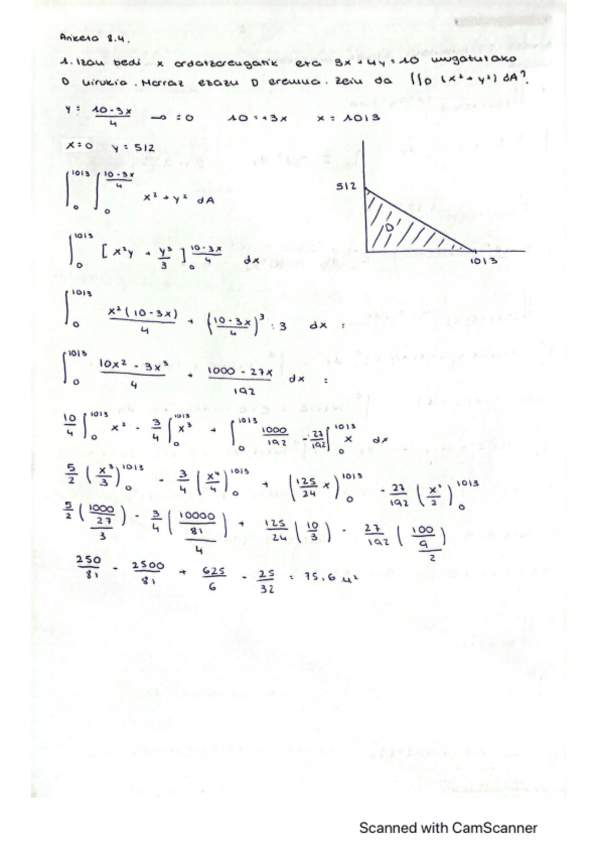 Ariketa 8.4.
1. Izan bedi x ardatzarengatik eta 3x + 4y = 10 mugatutako
D hirukia. Marraz ezazu D eremua. Zein da ∬D (x² + y²) dA?
y = (10-3x)/4 → = 0 10 = +3x x = 10/3
x = 0 y = 5/2
∫₀^10/3 ∫₀^(10-3x)/4 x² + y² dA
5/2
D
10/3
∫₀^10/3 [x²y + y³/3]₀^(10-3x)/4 dx
∫₀^10/3 x²(10-3x)/4 + ((10-3x)/4)³ : 3 dx =
∫₀^10/3 (10x² - 3x³)/4 + (1000 - 27x)/192 dx =
10/4 ∫₀^10/3 x² - 3/4 ∫₀^10/3 x³ + ∫₀^10/3 1000/192 - 27/192 ∫₀^10/3 x dx
5/2 (x³/3)₀^10/3 - 3/4 (x⁴/4)₀^10/3 + (125/24 x)₀^10/3 - 27/192 (x²/2)₀^10/3
5/2 (1000/27/3) - 3/4 (10000/81/4) + 125/24 (10/3) - 27/192 (100/9/2)
250/81 - 2500/81 + 625/6 - 25/32 = 75.6 u²
Scanned with CamScanner